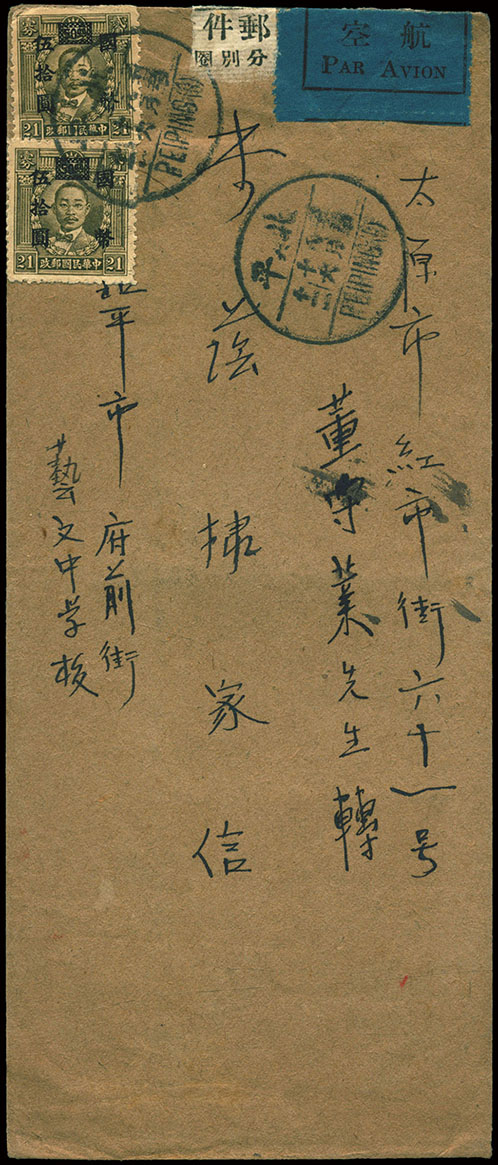 航空
PAR AVION
郵件
分別圈
國幣
伍拾圓
國幣
伍拾圓
21 中華民國郵政 21
21 中華民國郵政 21
PEIPING
北平
PEIPING
太原市紅市街六十一号
董守業先生轉
李蔭棣家信
北平市府前街
藝文中学校